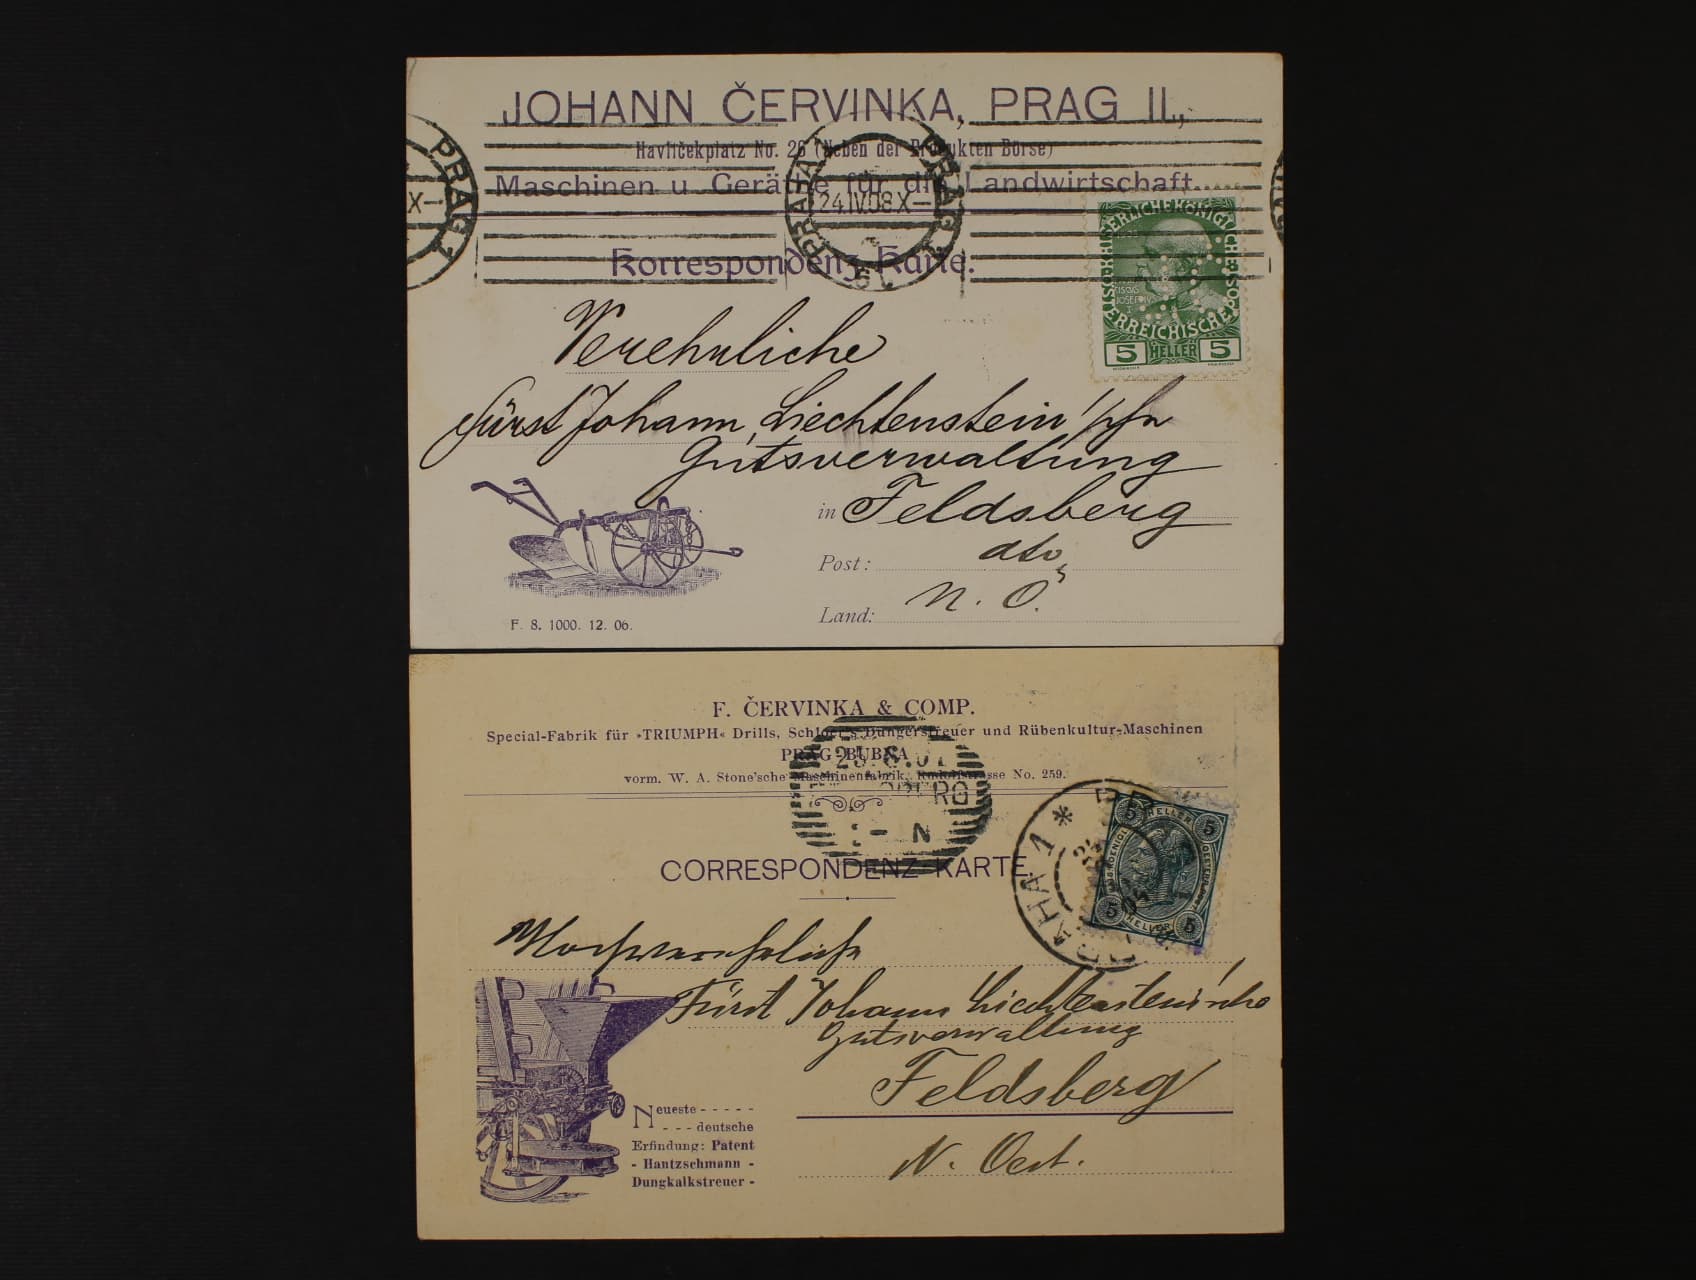 JOHANN ČERVINKA, PRAG II.,
Havlíčekplatz No. 26 (Neben der Produkten Börse)
Maschinen u. Geräthe für die Landwirtschaft.
PRAG 1
X-
PRAHA PRAG 1
24.IV.08 X-
Korrespondenz-Karte.
5 HELLER 5
Verehrliche
Fürst Johann Liechtenstein'sche
Gutsverwaltung
in Feldsberg
Post: dto
Land: N. Ö.
F. 8. 1000. 12. 06.
F. ČERVINKA & COMP.
Special-Fabrik für »TRIUMPH« Drills, Schloer's Düngerstreuer und Rübenkultur-Maschinen
PRAG-BUBNA
vorm. W. A. Stone'sche Maschinenfabrik, Rudolfstrasse No. 259.
CORRESPONDENZ-KARTE.
PRAHA 1
5 HELLER 5
5 HELLER 5
Hochverehrliche
Fürst Johann Liechtenstein'sche
Gutsverwaltung
Feldsberg
N. Oest.
Neueste - - - - -
- - - deutsche
Erfindung: Patent
- Hantzschmann -
Dungkalkstreuer -